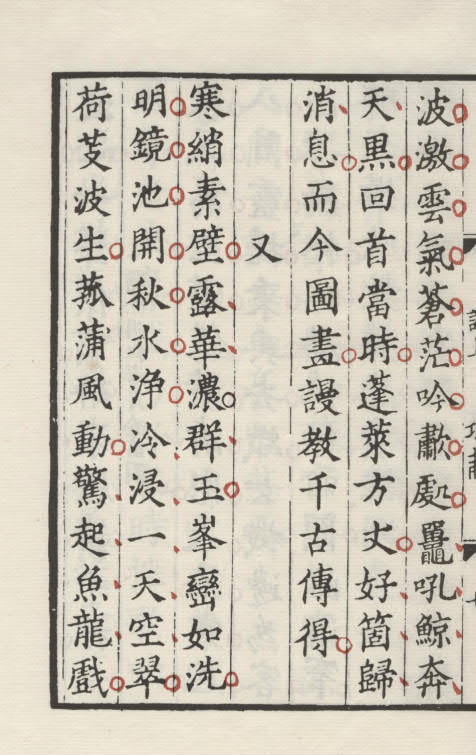 波激雲氣蒼茫吟歗處鼉吼鯨奔
天黒回首當時蓬萊方丈好箇歸
消息而今圖畫謾教千古傳得
又
寒綃素壁露華濃群玉峯巒如洗
明鏡池開秋水净冷浸一天空翠
荷芰波生菰蒲風動驚起魚龍戲